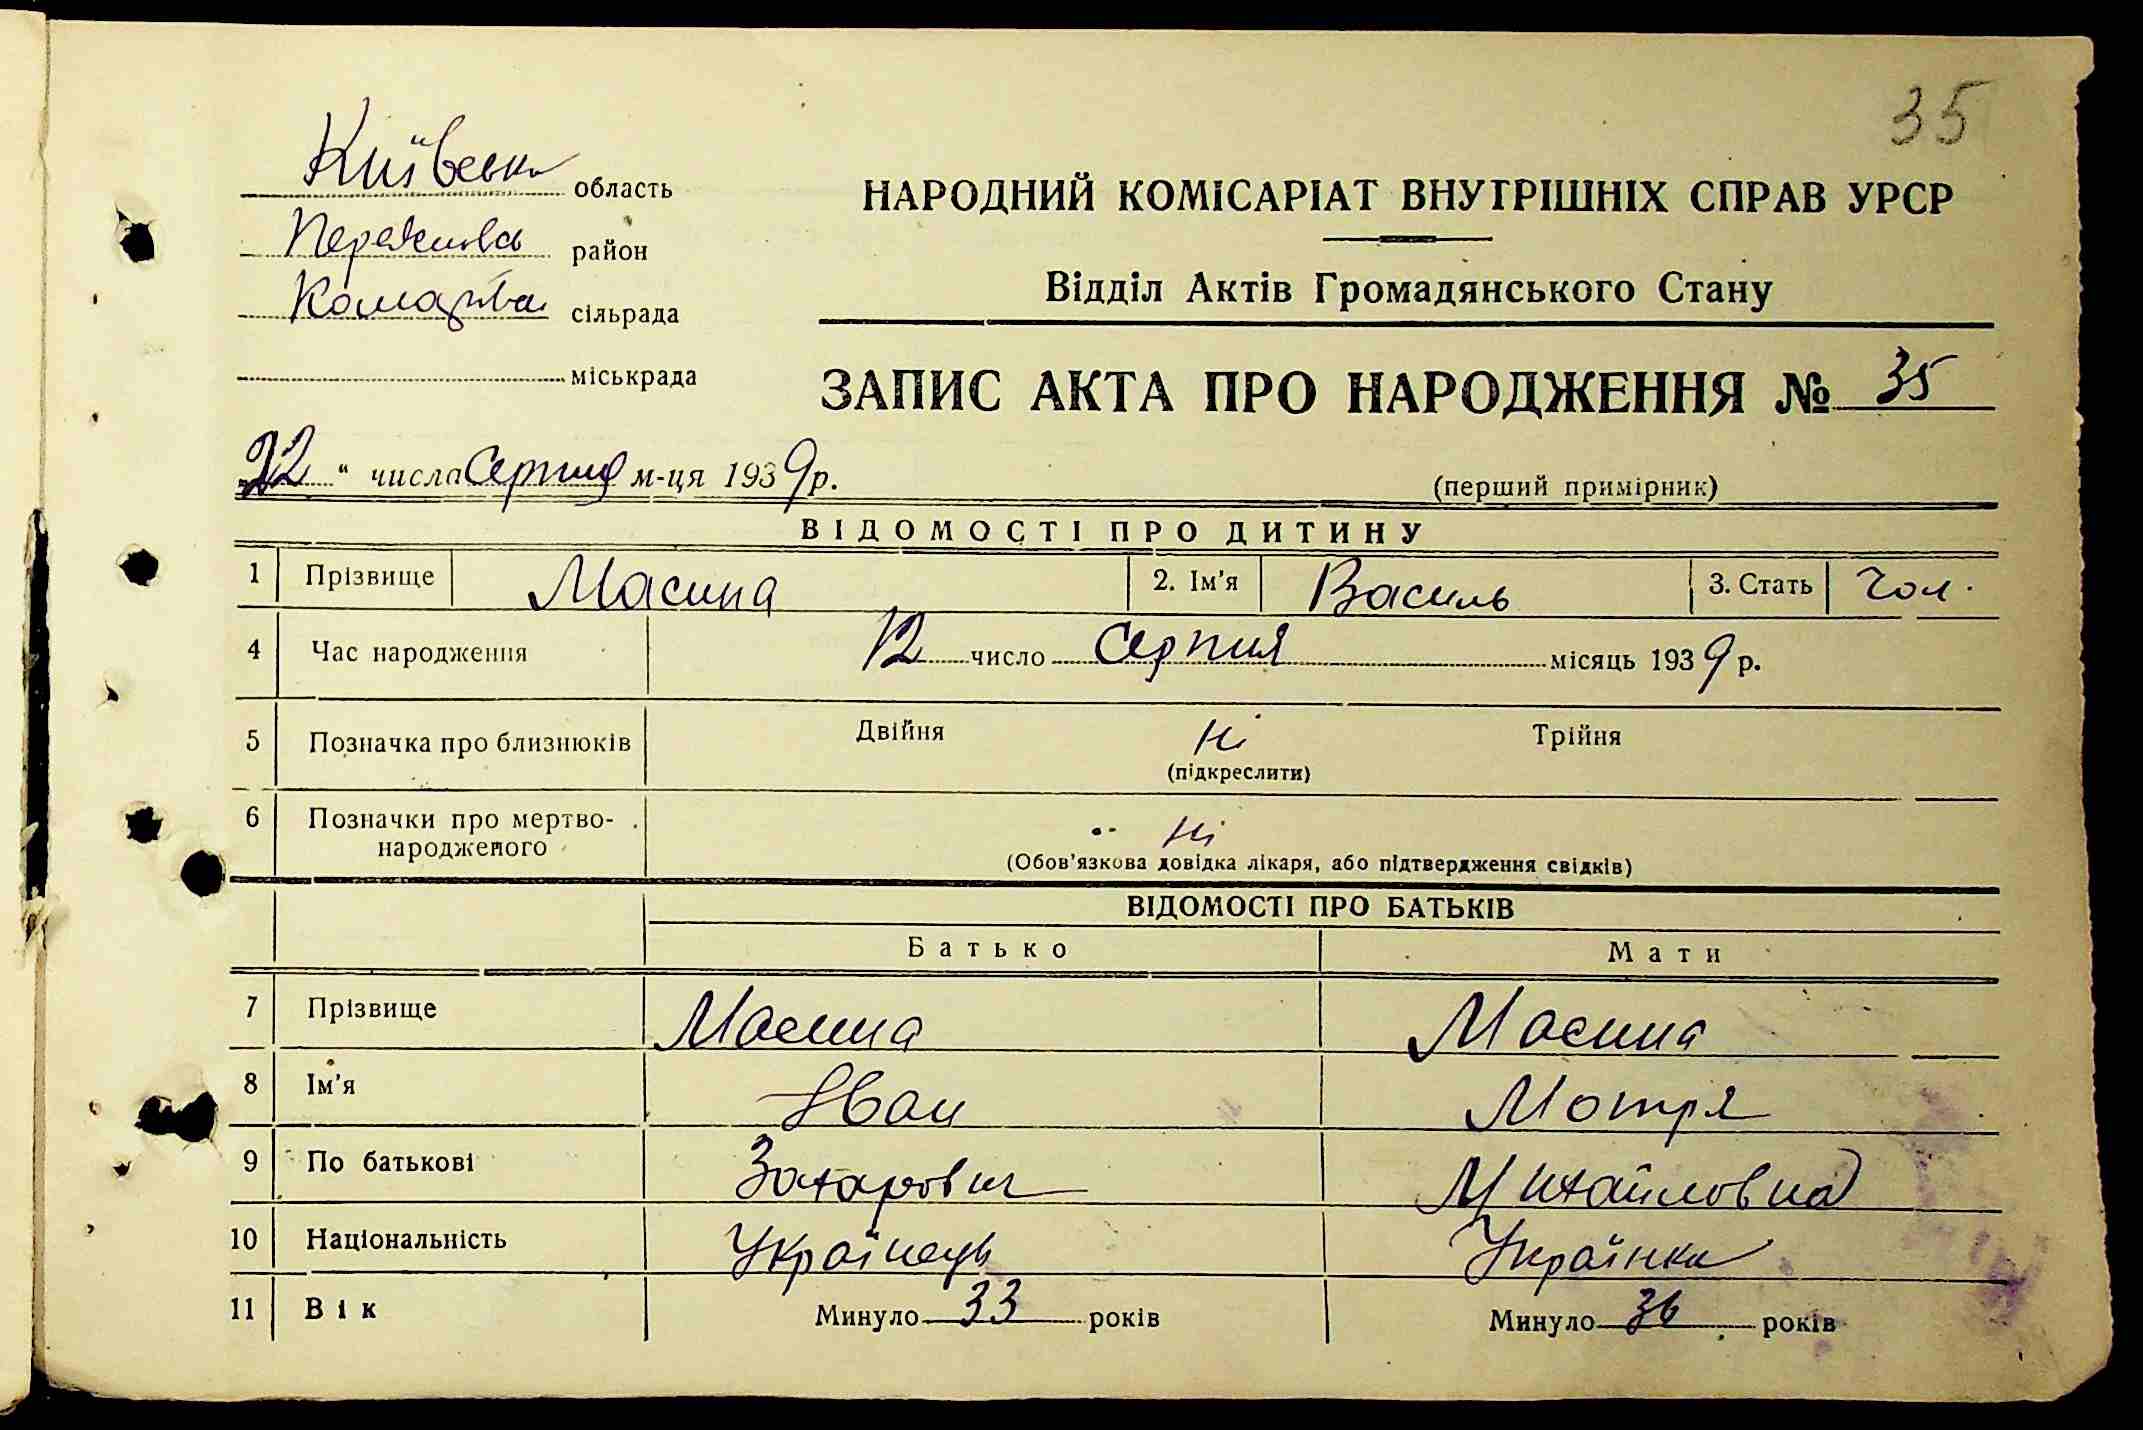 35
Київська область
НАРОДНИЙ КОМІСАРІАТ ВНУТРІШНІХ СПРАВ УРСР
район
Відділ Актів Громадянського Стану
сільрада
міськрада
ЗАПИС АКТА ПРО НАРОДЖЕННЯ № 35
22 " числа Серпня м-ця 1939 р.
(перший примірник)
ВІДОМОСТІ ПРО ДИТИНУ
1 Прізвище Масина 2. Ім'я Василь 3. Стать Чол.
4 Час народження 12 число Серпня місяць 1939 р.
5 Позначка про близнюків Двійня Ні Трійня
(підкреслити)
6 Позначки про мертво-народженого Ні
(Обов'язкова довідка лікаря, або підтвердження свідків)
ВІДОМОСТІ ПРО БАТЬКІВ
Батько Мати
7 Прізвище Масина Масина
8 Ім'я Іван Мотря
9 По батькові Захарович Михайловна
10 Національність Українець Українка
11 Вік Минуло 33 років Минуло 36 років